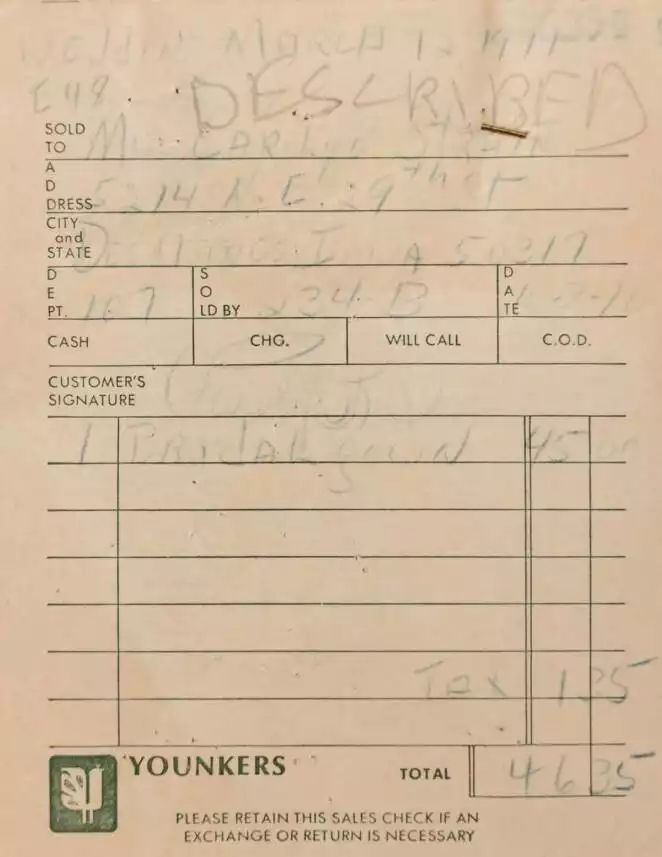 Wedding March 12 1971
E48 DESCRIBED
SOLD TO Miss CAROLYN
ADDRESS 5214 N.E. 29th CT
CITY and STATE Des Moines Iowa 50317
DEPT. 107 SOLD BY 234-B DATE
CASH CHG. WILL CALL C.O.D.
CUSTOMER'S SIGNATURE
1 BRIDAL gown 45 00
Tax 1 35
YOUNKERS TOTAL 46 35
PLEASE RETAIN THIS SALES CHECK IF AN
EXCHANGE OR RETURN IS NECESSARY